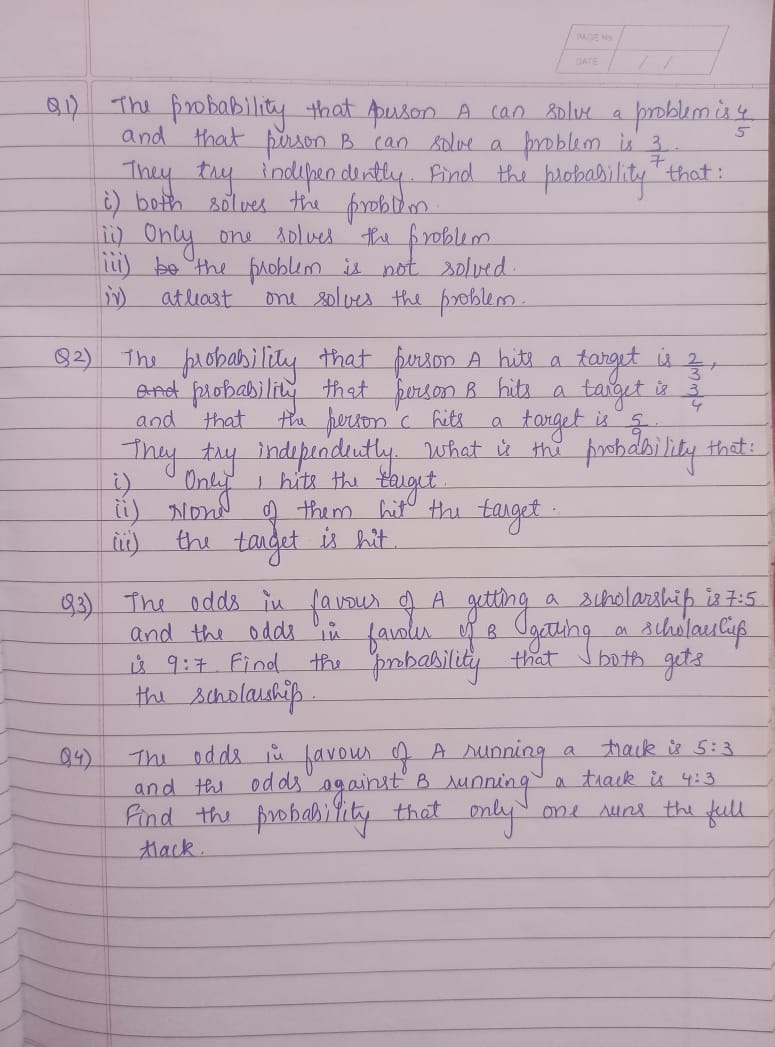 PAGE No.
DATE / /
Q1) The probability that person A can solve a problem is 4/5
and that person B can solve a problem is 3/7.
They try independently. Find the probability that:
i) both solves the problem.
ii) Only one solves the problem
iii) be the problem is not solved.
iv) atleast one solves the problem.
Q2) The probability that person A hits a target is 2/3,
and probability that person B hits a target is 3/4
and that the person C hits a target is 5/9.
They try independently. What is the probability that:
i) Only 1 hits the target.
ii) None of them hit the target.
iii) the target is hit.
Q3) The odds in favour of A getting a scholarship is 7:5
and the odds in favour of B getting a scholarship
is 9:7. Find the probability that both gets
the scholarship.
Q4) The odds in favour of A running a track is 5:3
and the odds against B running a track is 4:3
Find the probability that only one runs the full
track.